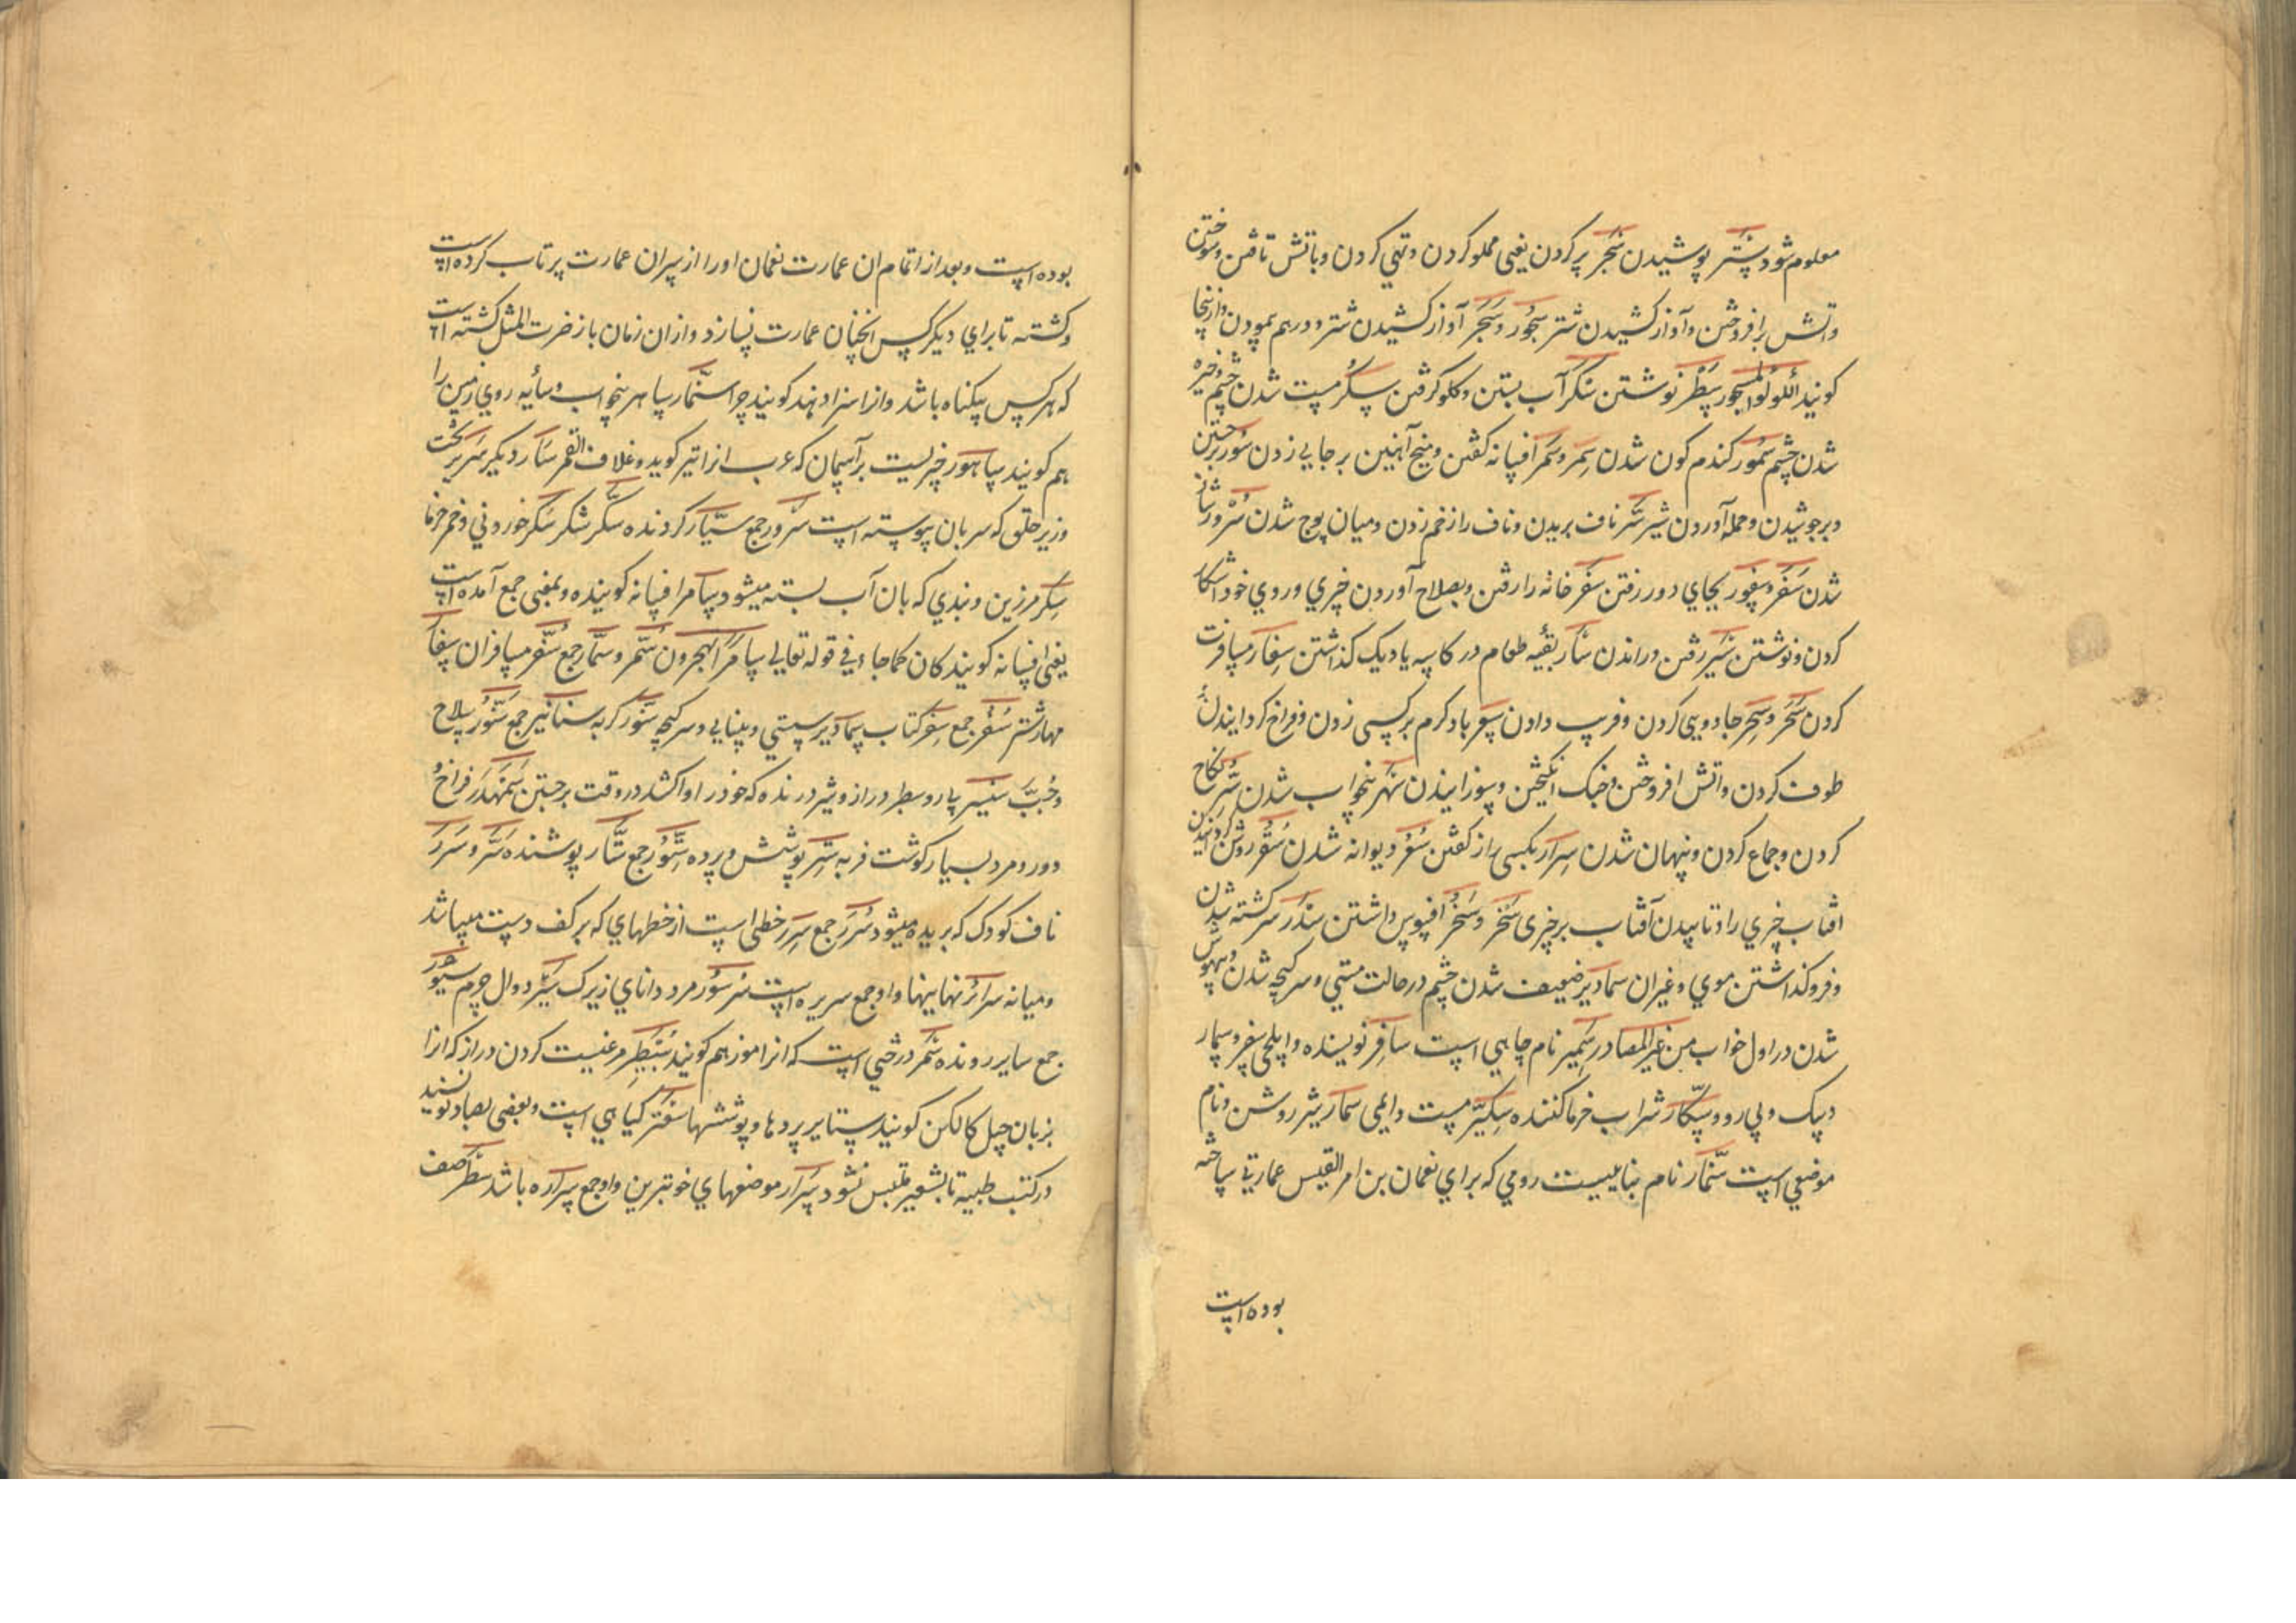 معلوم شود سَتر پوشیدن سَجر پر کردن یعنی مملو کردن و تهی کردن و باتش تافتن و سوختن
واتش برافروختن و آواز کشیدن شتر سُجور و سَجر آواز کشیدن شتر و درهم پمودن وازینجا
کویند اللولو المسجور سَطر نوشتن سَکر آب بستن و کلو کرفتن سُکر مست شدن چشم و خیره
شدن چشم سُمور کندم کون شدن سَمَر و سَمر افسانه کفتن و میخ آهنین بر جایی زدن سَور برجستن
و برجوشیدن و حمله آوردن شیر سَرّ ناف بریدن و ناف را زخم زدن و میان پوچ شدن سُرور شاد
شدن سَفَر و سفور بجای دور رفتن سَفر خانه را رفتن و بصلاح آوردن چیزی و روی خود اشکار
کردن و نوشتن سَیر رفتن و راندن سَأر بقیّه طعام در کاسه یا دیک کذاشتن سِفار مسافرت
کردن سَحر و سِحر جادویی کردن و فریب دادن سَعر باد کرم بر کسی زدن و فراخ کردانیدن
طوف کردن واتش افروختن و جنک انکیختن و سوزانیدن سَهَر بیخواب شدن سِرّ نکاح
کردن و جماع کردن و پنهان شدن سِرار بکسی راز کفتن سُعُر دیوانه شدن سَقر روشن کردانیدن
افتاب چیزی را و تابیدن آفتاب بر چیزی سَخر و سُخر افسوس داشتن سَدَر سرکشته شدن
و فروکذاشتن موی و غیر ان سمادیر ضعیف شدن چشم در حالت مستی و سرکیجه شدن و بیهوش
شدن در اول خواب من غیر المصادر سَمیر نام چاهی است سافِر نویسنده و ایلچی سفر و سمار
و پیک و پی رو و سَکّار شراب خرما کننده سِکّیر مست دایمی سمار شیر روشن و نام
موضعی است سِنّمار نام بناییست رومی که برای نعمان بن امر القیس عمارتی ساخته
بوده است
بوده است و بعد از اتمام ان عمارت نعمان او را از سر ان عمارت پرتاب کرده است
و کشته تا برای دیکر کس انچنان عمارت نسازد و از ان زمان باز ضرب المثل کشته است
که هر کس بیکناه باشد و از اسزا دهند کویند جزاء سنّمار ساهر بیخواب و سایه روی زمین را
هم کویند ساهور چیزیست بر آسمان که عرب از اتیر کوید و غلاف القمر سَأر دیکر سَریر تخت
و زیر حلق که سر بان پیوسته است سُرر جمع سیّار کردنده سُکّر شکر سَکَر خوردنی و خمر خرما
سِکر مرزین و بندی که بان آب بسته میشود سامر افسانه کوینده و بمعنی جمع آمده است
یعنی افسانه کویندکان کما جاء فی قوله تعالی سامراً تهجرون سُمّر و سُمّار جمع سُفّر مسافران سِفار
مهار شتر سُفُر جمع سِفر کتاب سمادیر سستی و بینایی و سرکیجه سِنّور کربه سنانیر جمع سَنَوّر سلاح
و خُبّ سَنیر یا رو سطبر دراز و شیر درنده که خود را واکشد در وقت برجستن سَمَهدَر فراخ و
دور و مرد بسیار کوشت فربه سِتر پوشش و پرده سُتور جمع سَتّار پوشنده سَرّ و سَرر
ناف کودک که بریده میشود سُرَر جمع سِرَر خطی است از خطهای که بر کف دست میباشد
و میانه سرائر نهانیها و او جمع سریره است سُرسُور مرد دانای زیرک سَیر دوال چرم سیور
جمع سایر رونده سَمُر درختی است که انرا موز هم کویند سُبَطر مرغیست کردن دراز که انرا
بزبان جیل کالکن کویند ستایر پردها و پوششها سَعتر کیاهی است و بعضی بصاد نویسند
در کتب طبیه تا بشعیر ملتبس نشود سَرار موضعهای خوبترین و او جمع سراره باشد سَطر صف